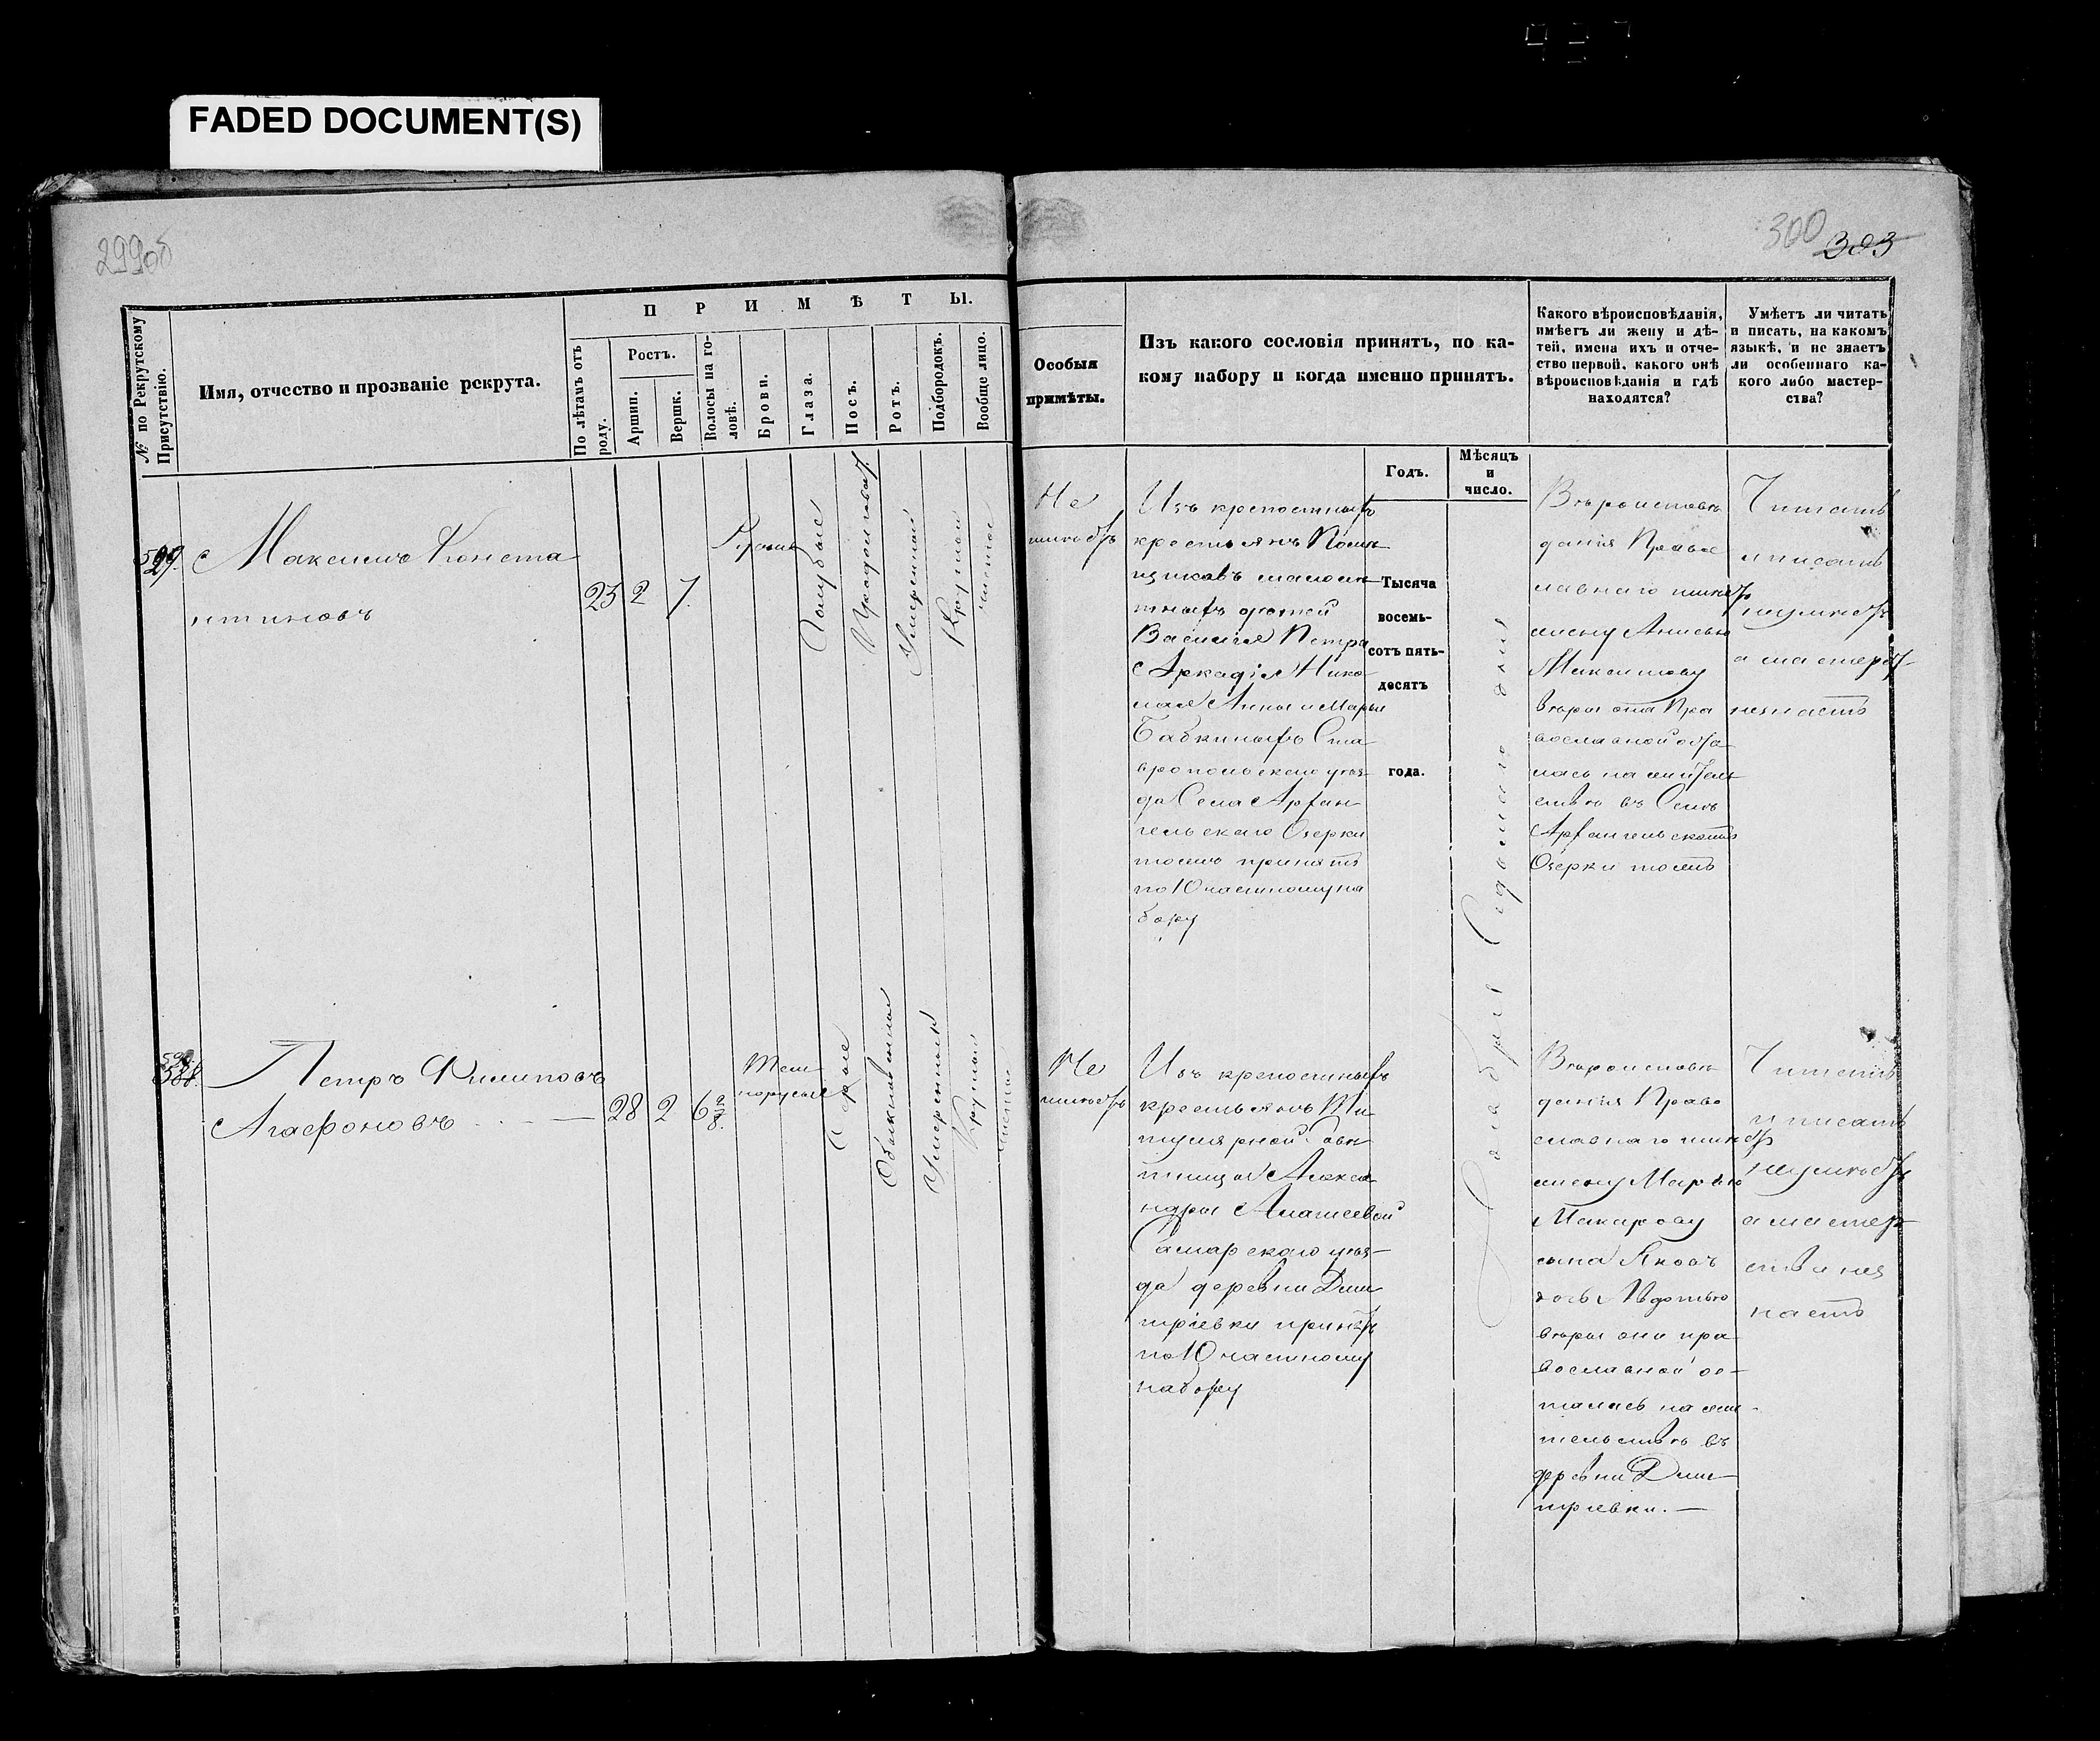 FADED DOCUMENT(S)
299об
300
303
№ по Рекрутскому Присутствію.
Имя, отчество и прозваніе рекрута.
ПРИМѢТЫ.
По лѣтамъ отъ роду.
Ростъ.
Аршин.
Вершк.
Волосы на головѣ.
Брови.
Глаза.
Носъ.
Ротъ.
Подбородокъ.
Вообще лицо.
Особыя
примѣты.
Изъ какого сословія принятъ, по ка-
кому набору и когда именно принятъ.
Годъ.
Мѣсяцъ
и
число.
Какого вѣроисповѣданія,
имѣетъ ли жену и дѣ-
тей, имена ихъ и отче-
ство первой, какого онѣ
вѣроисповѣданія и гдѣ
находятся?
Умѣетъ ли читать
и писать, на какомъ
языкѣ, и не знаетъ
ли особеннаго ка-
кого либо мастер-
ства?
Максимъ Конста
нтиновъ
25 2 7.
Русые
Голубые
Продолговат.
Умеренный
Круглой
чистое
Не
имѣетъ
Изъ крепостныхъ
крестьянъ Помѣ
щиковъ малолѣ
тныхъ детей
Василия Петра
Аркадiя Нико
лая Анны и Марьи
Бабкиныхъ Ста
вропольскаго уѣз
да Села Архан
гельскаго Озерки
тожъ принятъ
по 10 частному на
бору
Тысяча
восемь-
сотъ пять-
десятъ
года.
Вѣроисповѣ
дания Правос
лавнаго имеет
жену Анисью
Максимову
веры она Пра
вославной оста
лась на жител
стве въ Селѣ
Архангельскомъ
Озерки тожъ
Читать
и писать
неумѣетъ
а мастерст
незнаетъ
Петръ Филиповъ
Агафоновъ —
28 2 6 2/8.
Тем
норусые
Серые
Обыкновенной
Умеренный
Круглый
чистое
Не
имѣетъ
Изъ крепостныхъ
крестьянъ Ти
тулярной Совѣ
тницы Алекса
ндры
Самарскаго уѣз
да деревни Дми
тріевки принятъ
по 10 частному
набору
Вѣроисповѣ
дания Право
славнаго имеет
жену Марью
Макарову
сына Яковъ
дочь Авдотью
веры они пра
вославной ос-
тались на жи-
тельстве въ
деревни Дми
тріевки. —
Читать
и писать
неумѣетъ
а мастер
ства нез
наетъ